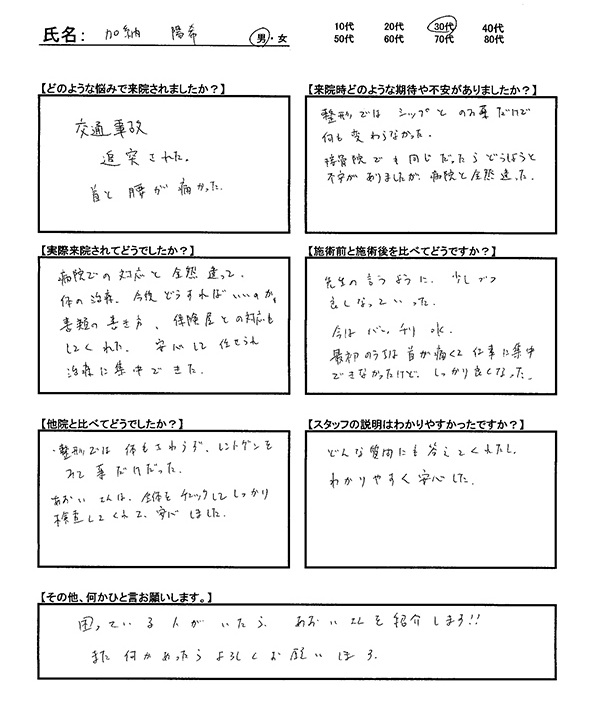 氏名: 加納 陽希
男・女
10代 20代 30代 40代
50代 60代 70代 80代
【どのような悩みで来院されましたか？】
交通事故
追突された。
首と腰が痛かった。
【来院時どのような期待や不安がありましたか？】
整形では シップと のみ薬だけで
何も変わらなかった。
接骨院でも同じだったらどうしようと
不安がありましたが、病院と全然違った。
【実際来院されてどうでしたか？】
病院での対応と全然違って、
体の治療、今後どうすればいいのか。
書類の書き方、保険屋との対応も
してくれた。 安心して任せられ
治療に集中できた。
【施術前と施術後を比べてどうですか？】
先生の言うように、少しづつ
良しなっていった。
今は バッチリ ok.
最初のうちは首が痛くて仕事に集中
できなかったけど、しっかり良くなった。
【他院と比べてどうでしたか？】
・整形では 体もさわらず、レントゲンを
みて薬だけだった。
あおいさんは、全体をチェックしてしっかり
検査してくれて、安心しました。
【スタッフの説明はわかりやすかったですか？】
どんな質問にも答えてくれたし、
わかりやすく安心した。
【その他、何かひと言お願いします。】
困っている人がいたら、あおいさんを紹介します!!
また何かあったらよろしくお願いします。